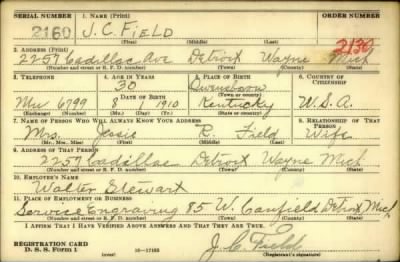 SERIAL NUMBER 1. NAME (Print) ORDER NUMBER
2160 J. C. FIELD 2130
(First) (Middle) (Last)
2. ADDRESS (Print)
2257 Cadillac Ave Detroit Wayne Mich
(Number and street or R. F. D. number) (Town) (County) (State)
3. TELEPHONE 4. AGE IN YEARS 5. PLACE OF BIRTH 6. COUNTRY OF CITIZENSHIP
30 Owensboro
(Town or county)
DATE OF BIRTH
6799 8 1 1910 Kentucky U.S.A.
(Exchange) (Number) (Mo.) (Day) (Yr.) (State or country)
7. NAME OF PERSON WHO WILL ALWAYS KNOW YOUR ADDRESS 8. RELATIONSHIP OF THAT PERSON
Mrs. R. Field Wife
(Mr., Mrs., Miss) (First) (Middle) (Last)
9. ADDRESS OF THAT PERSON
2257 Cadillac Detroit Wayne Mich.
(Number and street or R. F. D. number) (Town) (County) (State)
10. EMPLOYER'S NAME
Walter Stewart
11. PLACE OF EMPLOYMENT OR BUSINESS
Service Engraving 85 W. Canfield Detroit Mich
(Number and street or R. F. D. number) (Town) (County) (State)
I AFFIRM THAT I HAVE VERIFIED ABOVE ANSWERS AND THAT THEY ARE TRUE.
REGISTRATION CARD
D. S. S. Form 1 (over) 16-17105 J. C. Field
(Registrant's signature)